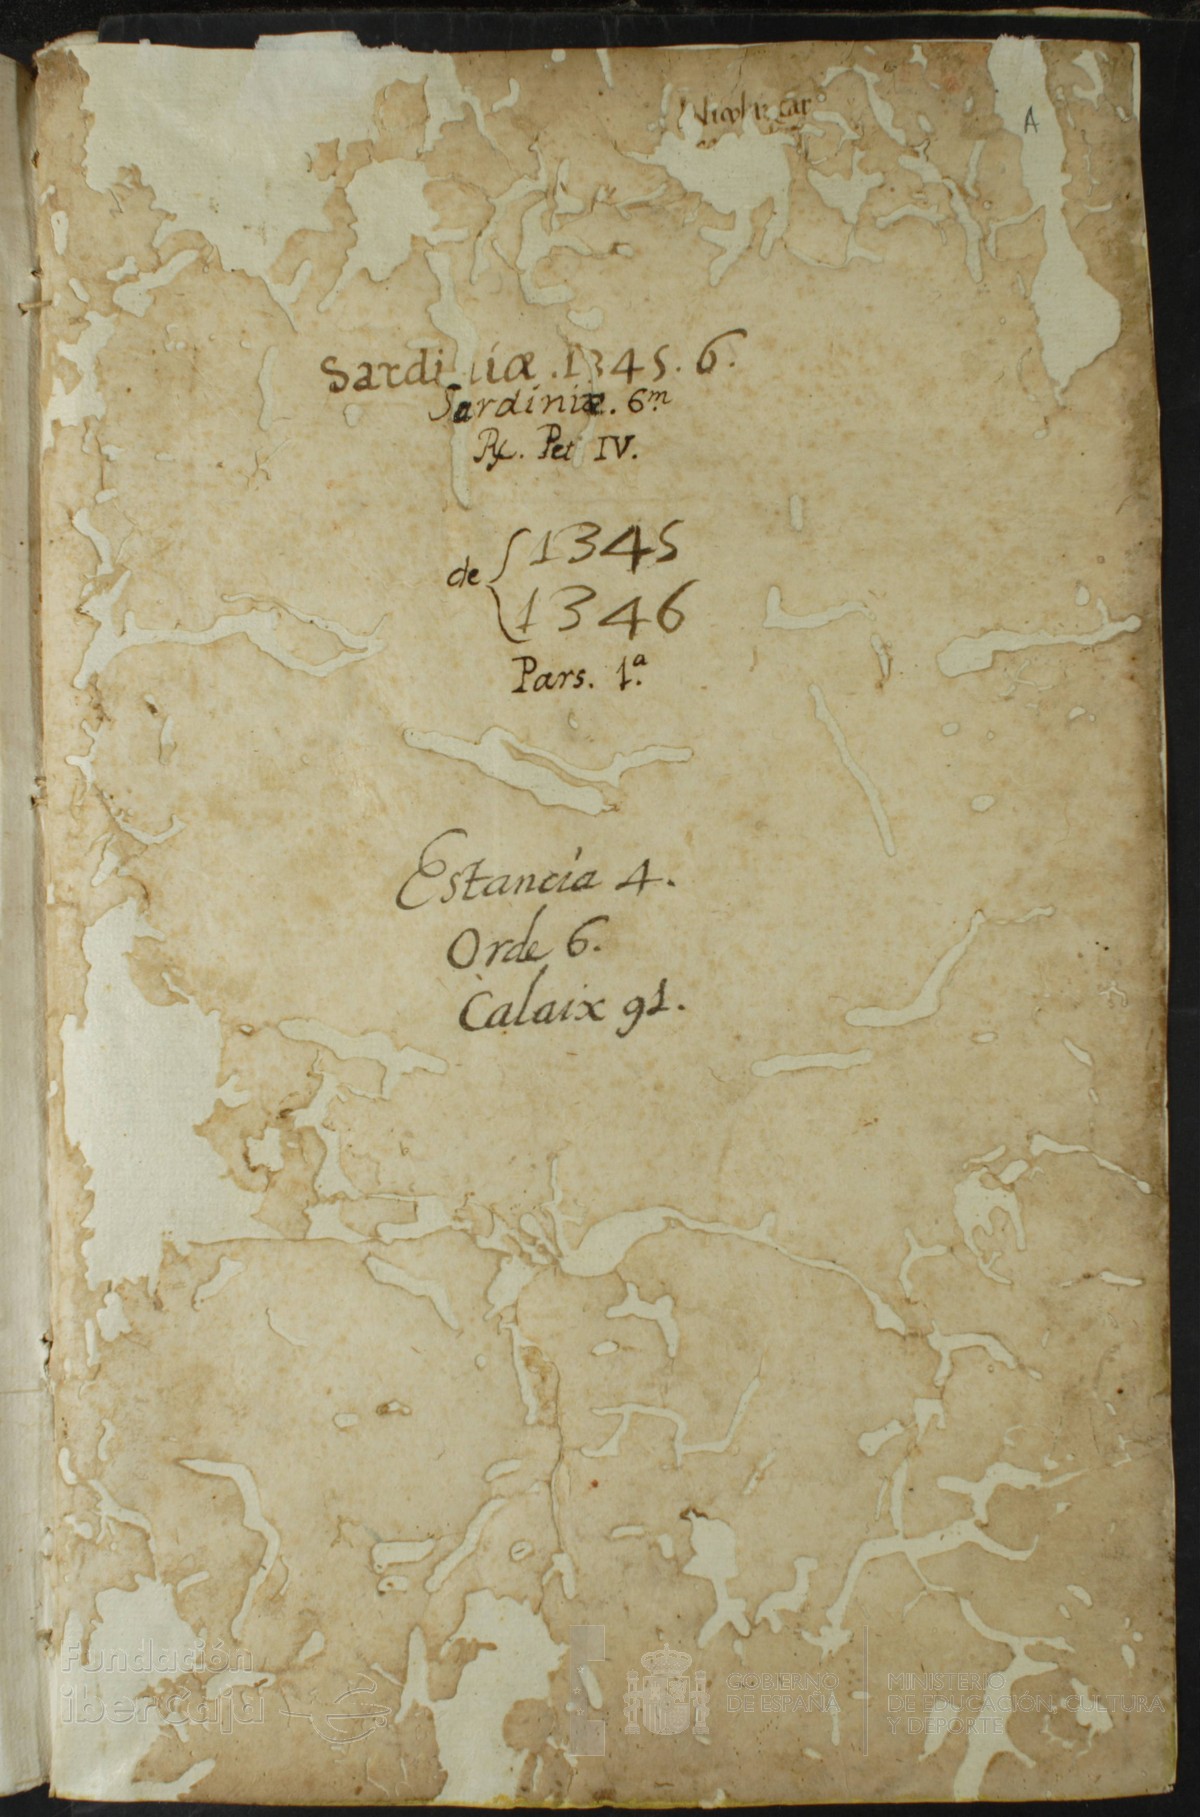 A
Sardiniæ .1345. 6.
Sardiniæ. 6m.
Rx. Pet IV.
de { 1345
1346
Pars. 1.a
Estancia 4.
Orde 6.
Calaix 91.
Fundación
iberCaja
GOBIERNO
DE ESPAÑA
MINISTERIO
DE EDUCACIÓN, CULTURA
Y DEPORTE